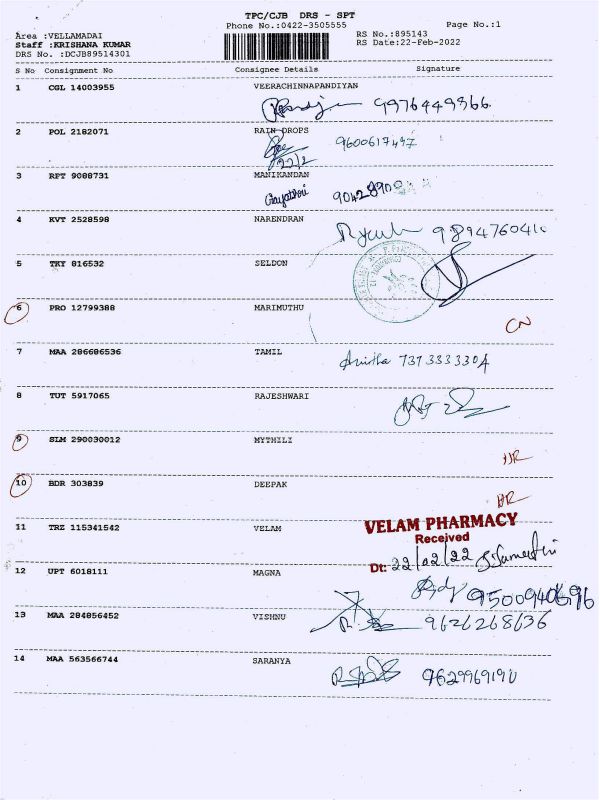 TPC/CJB DRS - SPT
Phone No.:0422-3505555
Page No.:1
Area :VELLAMADAI
RS No.:895143
Staff :KRISHANA KUMAR
RS Date:22-Feb-2022
DRS No. :DCJB89514301
S No Consignment No Consignee Details Signature
1 CGL 14003955 VEERACHINNAPANDIYAN
9976449866.
2 POL 2182071 RAIN DROPS
9600617497
22/2
3 RPT 9088731 MANIKANDAN
Gayathri
4 KVT 2528598 NARENDRAN
5 TKY 816532 SELDON
6 PRO 12799388 MARIMUTHU
CN
7 MAA 286686536 TAMIL
Anitha
8 TUT 5917065 RAJESHWARI
9 SLM 290030012 MYTHILI
10 BDR 303839 DEEPAK
VELAM PHARMACY
Received
11 TRZ 115341542 VELAM
Dt: 22/02/22
12 UPT 6018111 MAGNA
9500940696
13 MAA 284856452 VISHNU
9626268636
14 MAA 563566744 SARANYA